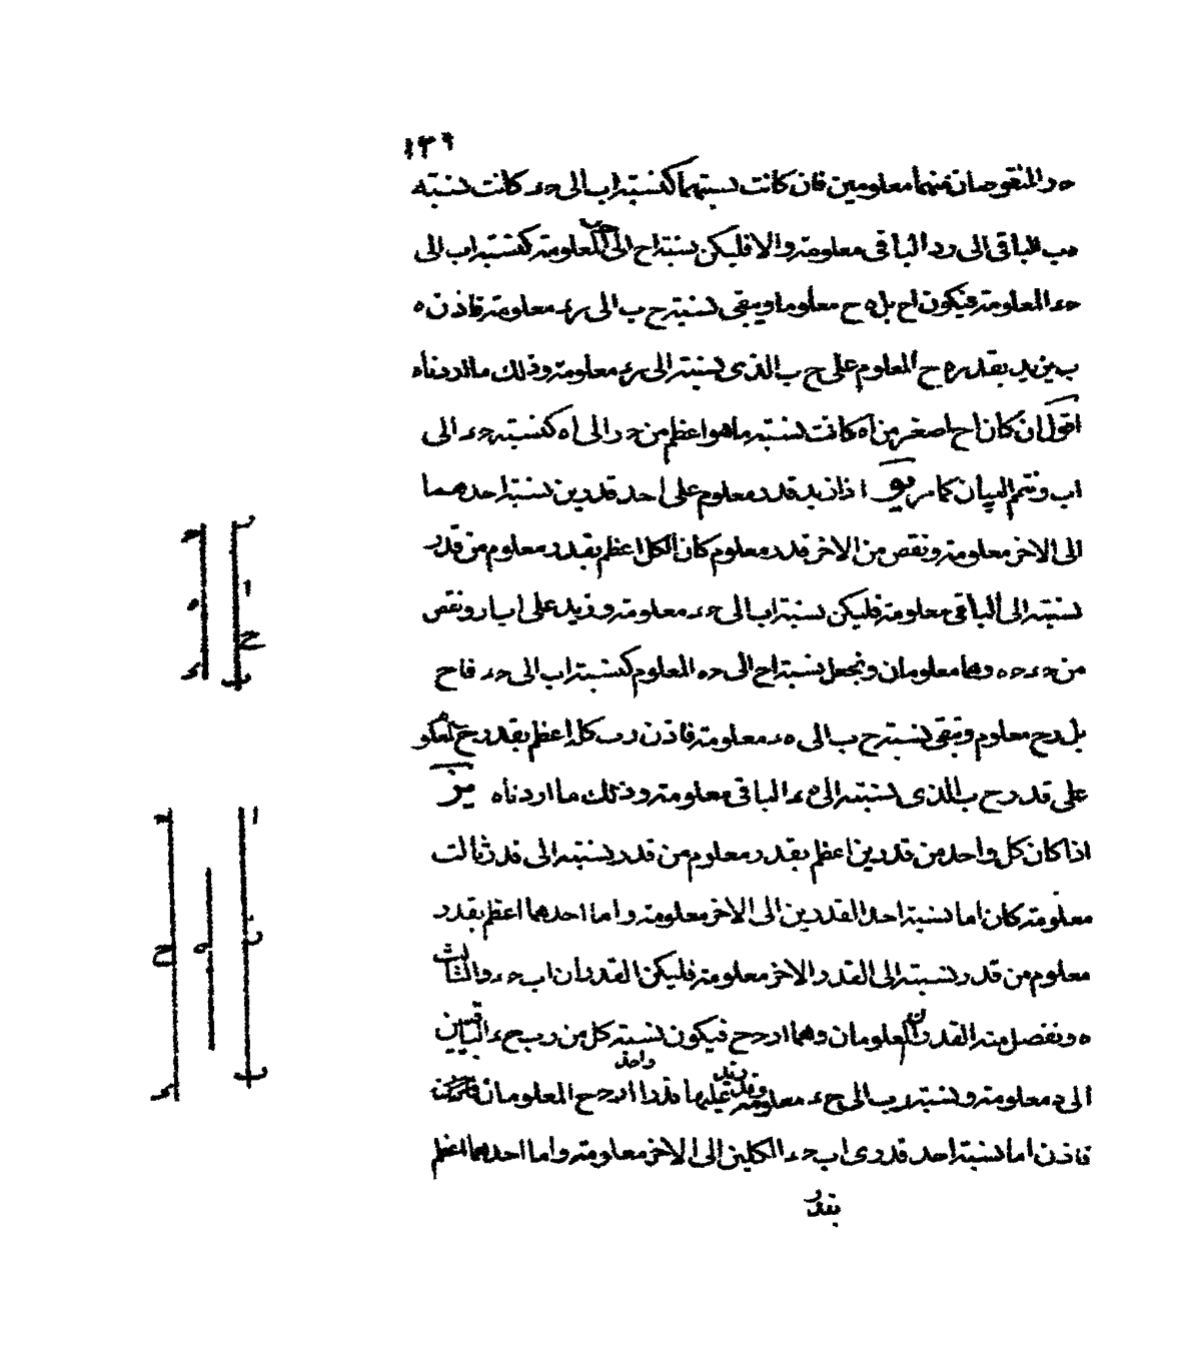 ١٣٩
حر المنقوصان منهما معلومين فان كانت نسبتهما كنسبة اب الى حء كانت نسبة
هب الباقى الى رد الباقى معلومة والا فليكن نسبة اح الى حر المعلومة كنسبة اب الى
حء المعلومة فيكون اح بل ه ح معلوما ويبقى نسبة ح ب الى رء معلومة فاذن ه
ب يزيد بقدر ه ح المعلوم على ح ب الذى نسبته الى رء معلومة وذلك ما اردناه
اقول ان كان اح اصغر من اه كانت نسبة ما هو اعظم من حر الى اه كنسبة حء الى
اب ونتم البيان كما مر يو اذا زيد قدر معلوم على احد قدرين نسبة احدهما
الى الاخر معلومة ونقص من الاخر قدر معلوم كان الكل اعظم بقدر معلوم من قدر
نسبته الى الباقى معلومة فليكن نسبة اب الى حء معلومة وزيد على اب ار ونقص
من حء حه وهما معلومان ونجعل نسبة اح الى حه المعلوم كنسبة اب الى حء فاح
بل رح معلوم وتبقى نسبة ح ب الى هء معلومة فاذن رب كله اعظم بقدر رح المعلوم
على قدر ح ب الذى نسبته الى هء الباقى معلومة وذلك ما اردناه يز
اذا كان كل واحد من قدرين اعظم بقدر معلوم من قدر نسبته الى قدر ثالث
معلومة كان اما نسبة احد القدرين الى الاخر معلومة واما احدهما اعظم بقدر
معلوم من قدر نسبته الى القدر الاخر معلومة فليكن القدران اب حء والثالث
ه ونفصل منه القدران المعلومان وهما ار حح فيكون نسبة كل من رب حء الباقيين
الى ه معلومة ونسبة رب الى حء معلومة وقد زيد عليهما قدرا ار حح المعلومان
فاذن اما نسبة احد قدرى اب حء الكلين الى الاخر معلومة واما احدهما اعظم
بقدر
ر
ا
ح
ب
ح
ه
ء
ا
ر
ب
ه
ح
ح
ء